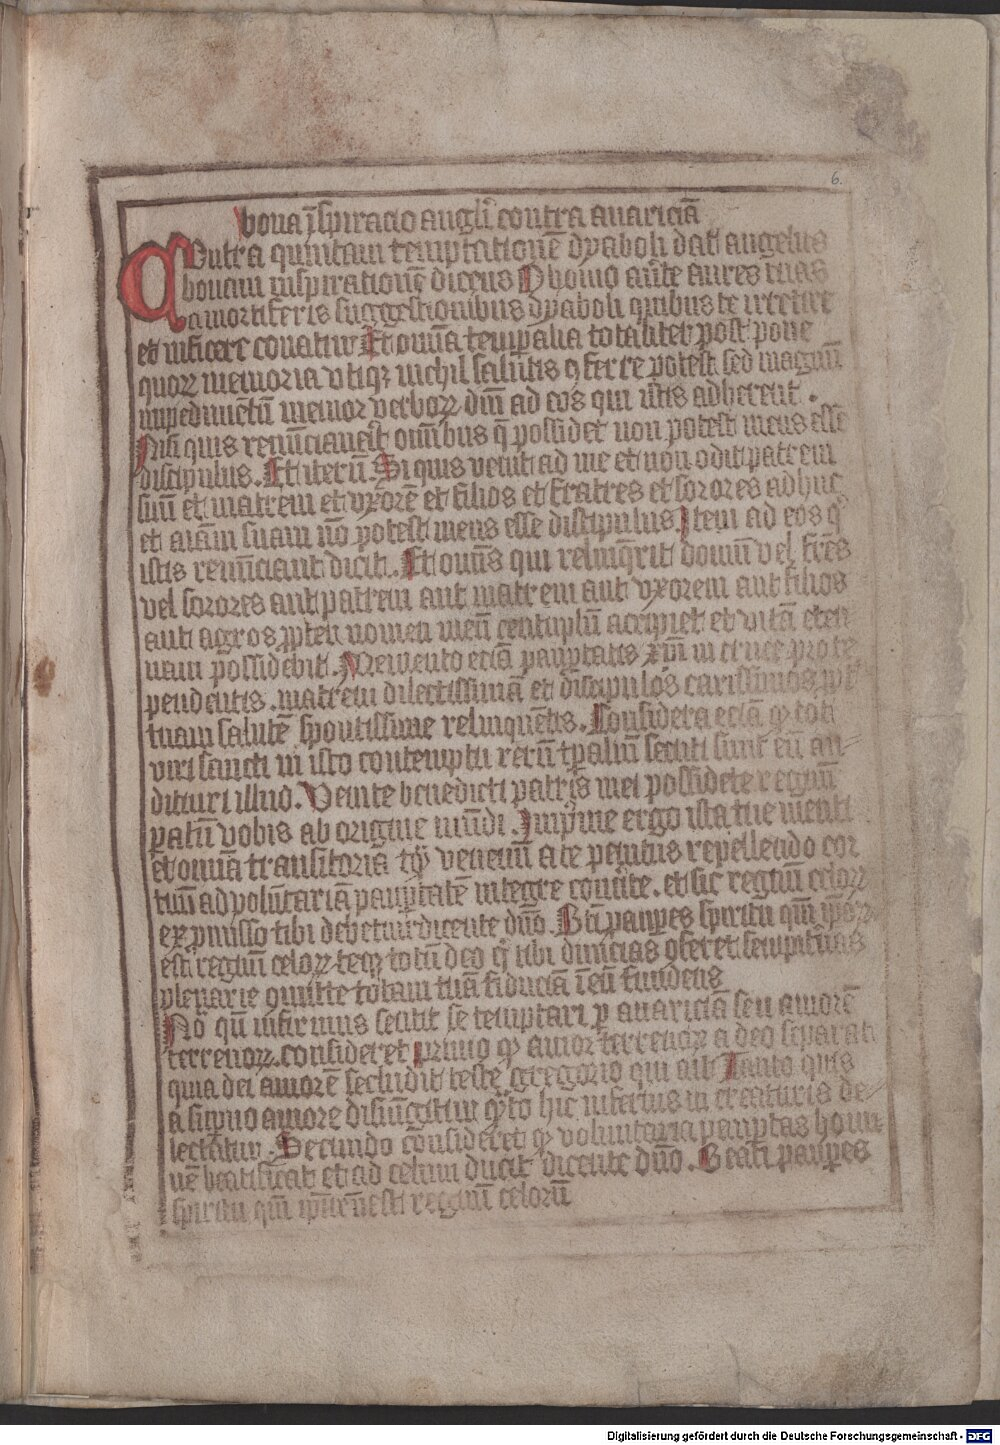 6.
bona īspiracio angeli contra auariciā
COntra quintam temptationē dyaboli dat angelus
bonam inspirationē dicens O homo auʼte aures tuas
a mortiferis suggestionibus dyaboli quibus te irretire
et inficere conatur Et omnīa temporalia totaliter post pone
quoꝝ memoria vtiqꝫ nichil salutis ꝯferre potest sed magnū
impedimētū memor verboꝝ dnī ad eos qui istis adherent .
Nisi quis renūnciauerit omībus q̄ possidet non potest meus esse
discipulus . Et iterū . Si quis venit ad me et non odit patrem
suū et matrem et vxorē et filios et fratres et sorores adhuc
et aīam suam nō potest meus esse discipulus Item ad eos qͥ
istis renūnciant dicit . Et omīs qui relinq̄rit domū vel frēs
vel sorores aut patrem aut matrem aut vxorem aut filios
aut agros ꝓpter nomen meū centuplū accipiet et vitā eter
nam possidebit . Memento eciā pauꝑtatis xp̄i in cruce pro te
pendentis . matrem dilectissimā et discipulos carissimos ꝓpt͛
tuam salutē spontissime relinquētis . Considera eciā qꝫ tot
viri sancti in isto contemptu rerū tꝑaliū secuti sunt eū au=
dituri illud . Venite benedicti patris mei possidete regnū
paratū vobis ab origine mūndi . Imprime ergo ista tue menti
et omnīa transitoria tqͣꝫ venenū a te penitus repellendo cor
tuū ad volūtariā pauꝑtatē integre conūte . et sic regnū celoꝝ
ex ꝓmisso tibi debetur dicente dnō . Bti pauꝑes spiritu qm̄ ip̄oꝝ
est regnū celoꝝ teqꝫ totū deo qͥ tibi diuicias ꝯferet sempiternas
plenarie ꝯmitte totam tuā fiduciā ī eū fundens
Nō qn̄ infirmus sentit se temptari ꝑ auariciā seu amorē
terrenoꝝ . consideret primo qꝫ amor terrenoꝝ a deo separat
quia dei amorē secludit teste gregorio qui ait Tanto quis
a supno amore disiūngitur qͣto hic inferius in creaturis de=
lectatur . Secundo consideret qꝫ voluntaria pauꝑtas homi
nē beatificat et ad celum ducit dicente dnō . Beati pauꝑes
spiritu qm̄ ip̄orum est regnū celorū
Digitalisierung gefördert durch die Deutsche Forschungsgemeinschaft - DFG